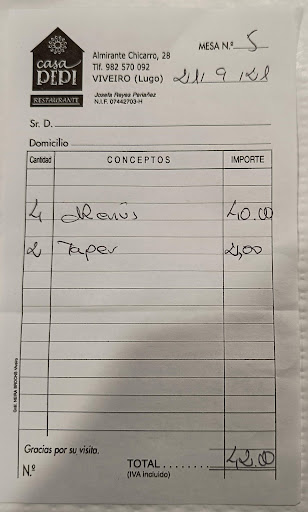 casa
PEPI
RESTAURANTE
Almirante Chicarro, 28
Tlf. 982 570 092
VIVEIRO (Lugo)
Josefa Reyes Periañez
N.I.F. 07442703-H
MESA N.º 5
Sr. D.
Domicilio
Cantidad CONCEPTOS IMPORTE
4 Menús 40.00
2 Taper 2,00
Gracias por su visita.
N.º
TOTAL 42.00
(IVA incluido)